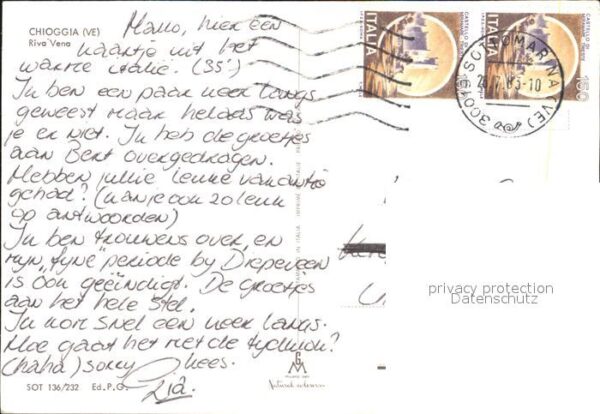 CHIOGGIA (VE)
Riva Vena
Hallo, hier een
kaartje uit het
warme italië. (35°)
Ik ben een paar keer langs
geweest maar helaas was
je er niet. Ik heb de groetjes
aan Bert overgedragen.
Hebben jullie leuke vakantie
gehad? (kan je ook zo leuk
op antwoorden)
Ik ben trouwens over, en
mijn "fijne" periode by Diepeveen
is ook geëindigt. De groetjes
aan het hele stel.
Ik kom snel een keer langs.
Hoe gaat het met de
(haha) sorry Kees.
Ria.
SOT 136/232 Ed. P.G.
ITALIA
ITALIA
CASTELLO DI
MIRAMARE-TRIESTE
150
30019 SOTTOMARINA (VE)
GM
privacy protection
Datenschutz